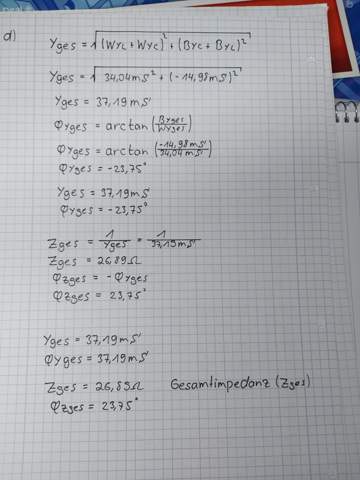 d)
Yges = √(WYL + WYC)² + (BYC + BYL)²
Yges = √34,04mS² + (-14,98mS)²
Yges = 37,19mS
φYges = arctan (BYges/WYges)
φYges = arctan (-14,98mS/34,04mS)
φYges = -23,75°
Yges = 37,19mS
φYges = -23,75°
Zges = 1/Yges = 1/37,19mS
Zges = 26,89Ω
φZges = -φYges
φZges = 23,75°
Yges = 37,19mS
φYges = 37,19mS
Zges = 26,89Ω Gesamtimpedanz (Zges)
φZges = 23,75°